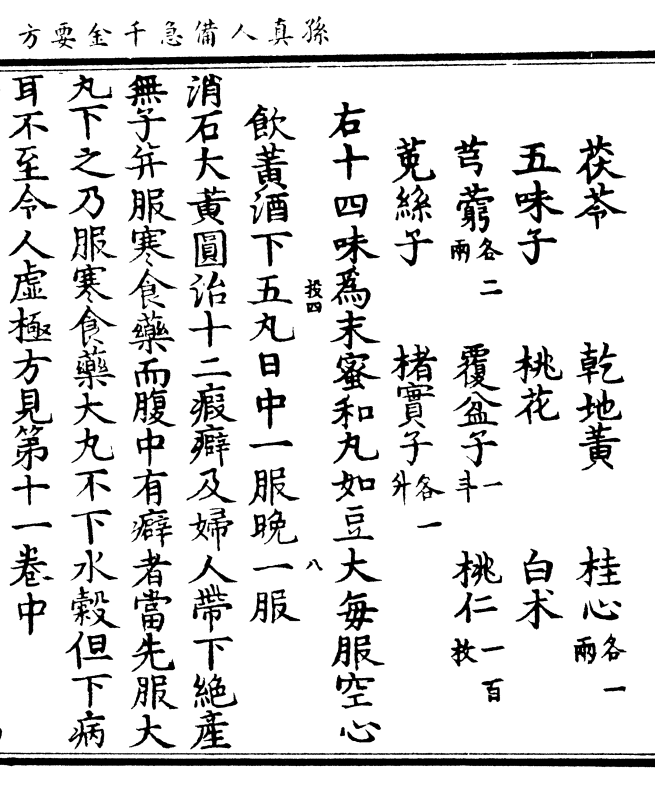 孫真人備急千金要方
茯苓　乾地黃　桂心各一兩
五味子　桃花　白术
芎藭各二兩　覆盆子一斗　桃仁一百枚
菟絲子　楮實子各一升
右十四味為末蜜和丸如豆大每服空心
投四　八
飲黃酒下五丸日中一服晚一服
消石大黃圓治十二瘕癖及婦人帶下絕產
無子并服寒食藥而腹中有癖者當先服大
丸下之乃服寒食藥大丸不下水穀但下病
耳不至令人虛極方見第十一卷中